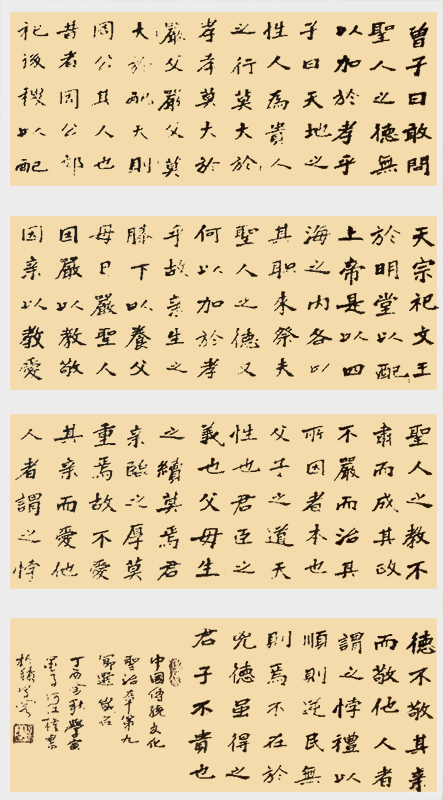 曾子曰敢問
聖人之德無
以加於孝乎
子曰天地之
性人為貴人
之行莫大於
孝孝莫大於
嚴父嚴父莫
大於配天則
周公其人也
昔者周公郊
祀後稷以配
天宗祀文王
於明堂以配
上帝是以四
海之內各以
其職來祭夫
聖人之德又
何以加於孝
乎故亲生之
膝下以養父
母日嚴聖人
因嚴以教敬
因亲以教愛
聖人之教不
肅而成其政
不嚴而治其
所因者本也
父子之道天
性也君臣之
義也父母生
之續莫焉君
亲臨之厚莫
重焉故不愛
其亲而愛他
人者謂之悖
德不敬其亲
而敬他人者
謂之悖禮以
順則逆民無
則焉不在於
兇德虽得之
君子不貴也
中國傳統文化
聖治章第九
丁酉